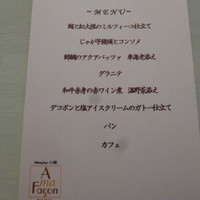 ～MENU～
鯛と紅大根のミルフィーユ仕立て
じゃが芋饅頭とコンソメ
鮮鯛のアクアパッツァ 車海老添え
グラニテ
和牛赤身の赤ワイン煮 温野菜添え
デコポンと塩アイスクリームのガトー仕立て
パン
カフェ
A
ma
Façon